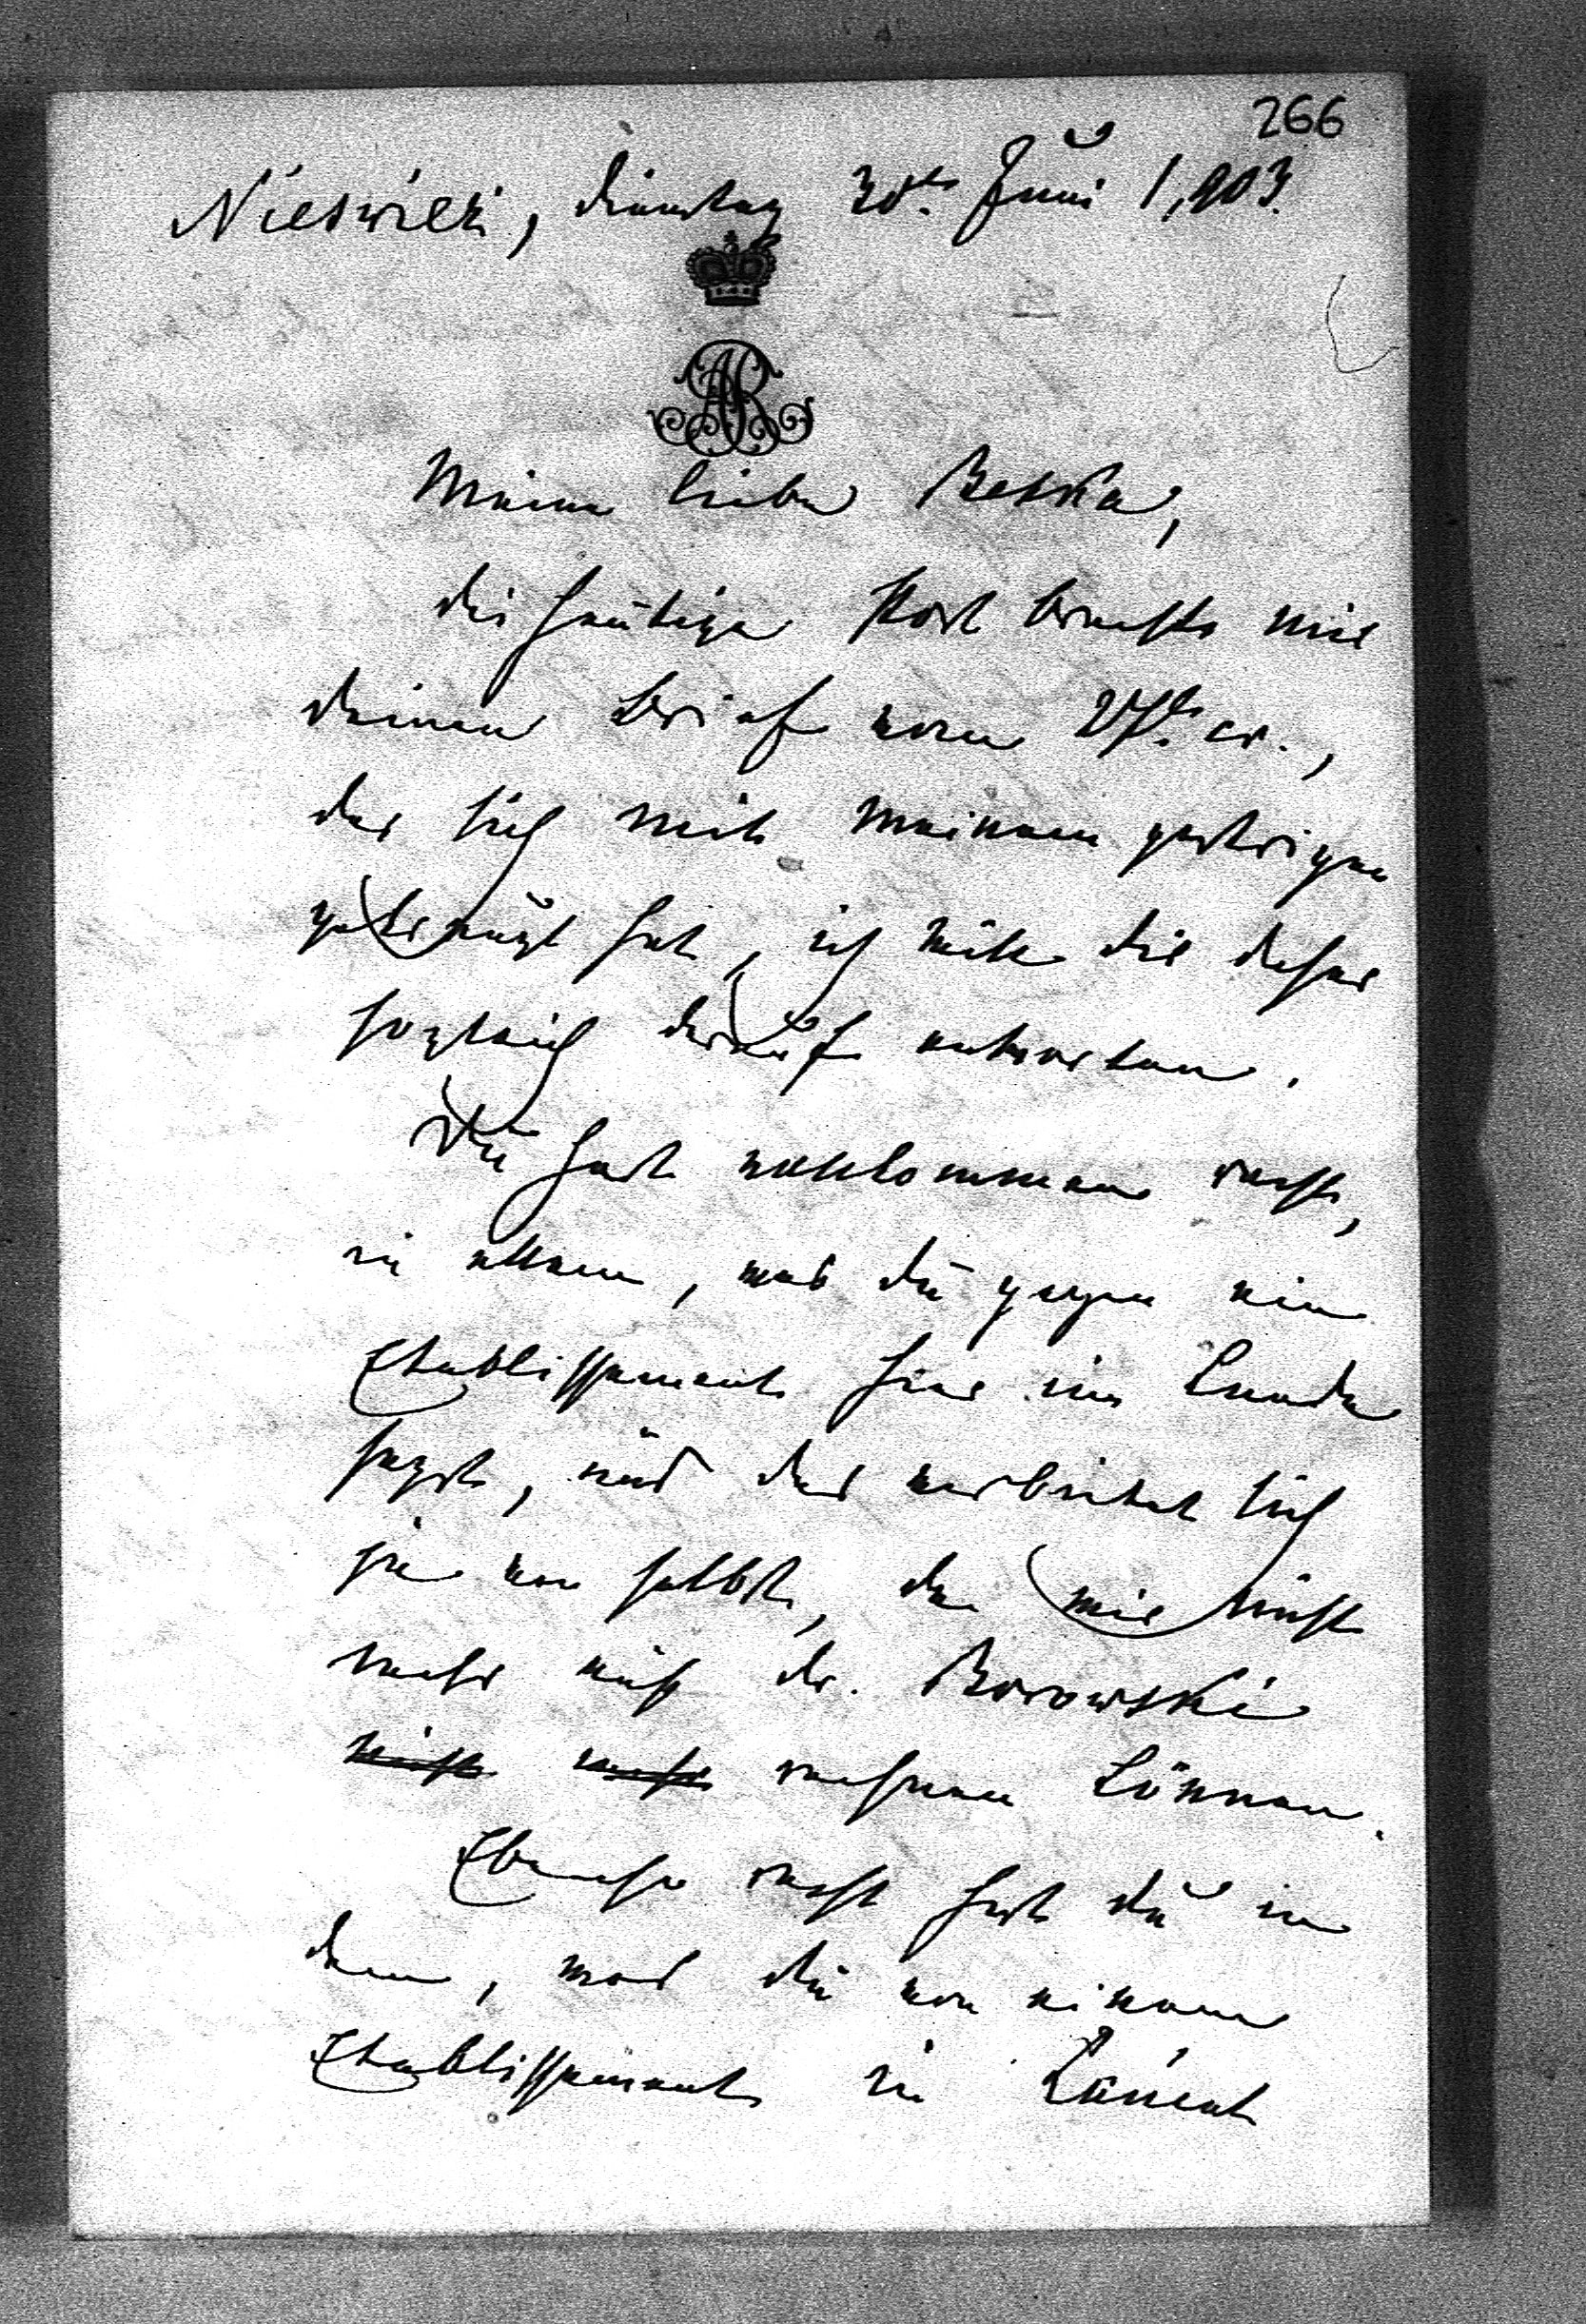 266
Nieswież, Dienstag 30ten Juni 1,903.
AR
Meine liebe Betka,
die heutige Post brachte mir
deinen Brief vom 27ten cr.,
der sich mit meinem gestrigen
gekreuzt hat, ich will dir daher
sogleich darauf antworten.
Du hast vollkommen recht,
in allem, was du gegen ein
Etablissement hier im Lande
sagst, und das verbietet sich
ja von selbst, da wir nicht
mehr auf dr. Borowski
nicht mehr rechnen können.
Ebenso recht hast du in
dem, was du von einem
Etablissement in Łańcut